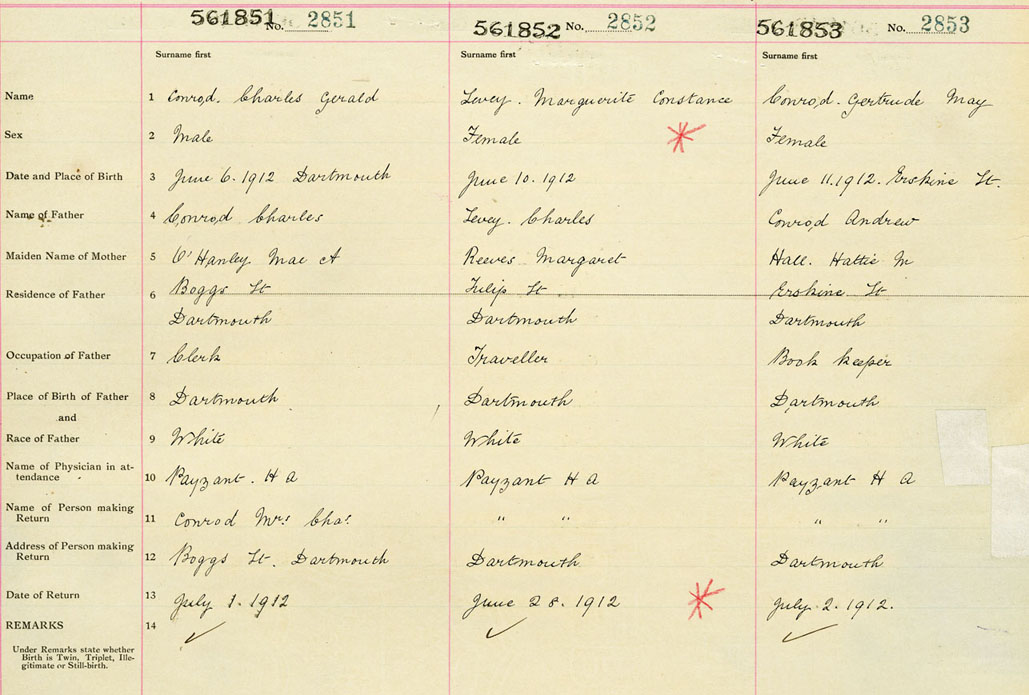 561851 No. 2851 561852 No. 2852 561853 No. 2853
Surname first Surname first Surname first
Name 1 Conrod. Charles Gerald Levey. Marguerite Constance Conrod. Gertrude May
Sex 2 Male Female Female
Date and Place of Birth 3 June 6. 1912 Dartmouth June 10. 1912 June 11. 1912. Erskine St.
Name of Father 4 Conrod Charles Levey. Charles Conrod Andrew
Maiden Name of Mother 5 O'Hanley Mae A Reeves Margaret Hall. Hattie M
Residence of Father 6 Boggs St Tulip St Erskine St
Dartmouth Dartmouth Dartmouth
Occupation of Father 7 Clerk Traveller Book keeper
Place of Birth of Father 8 Dartmouth Dartmouth Dartmouth
and
Race of Father 9 White White White
Name of Physician in at-
tendance 10 Payzant. H A Payzant H A Payzant H A
Name of Person making
Return 11 Conrod Mrs Chas. " " " "
Address of Person making
Return 12 Boggs St. Dartmouth Dartmouth Dartmouth
Date of Return 13 July 1. 1912 June 28. 1912 July. 2. 1912.
REMARKS 14
Under Remarks state whether
Birth is Twin, Triplet, Ille-
gitimate or Still-birth.